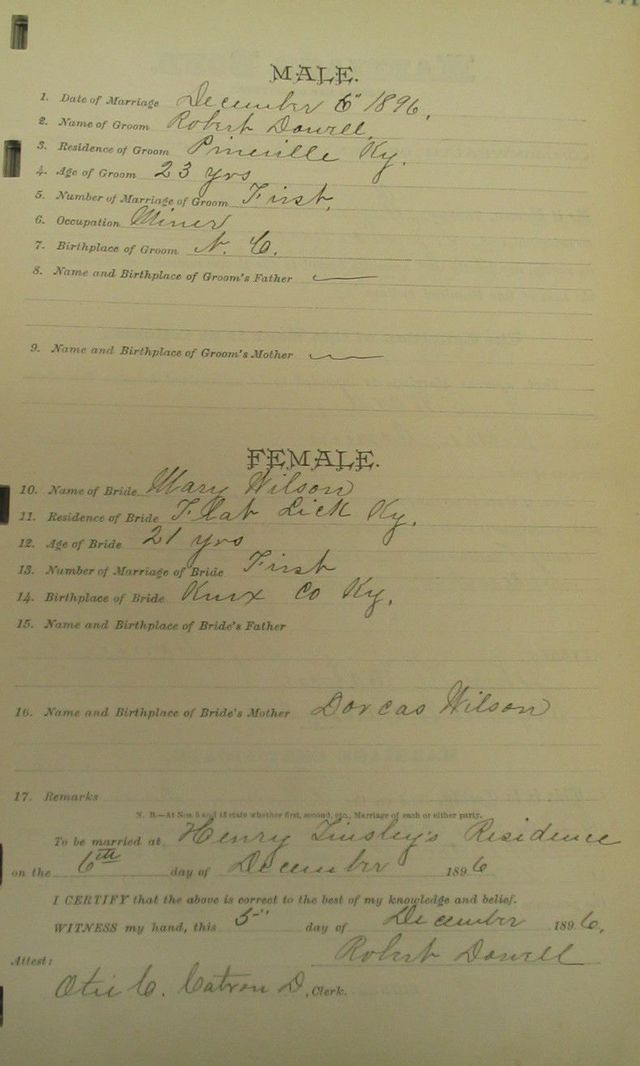 MALE.
1. Date of Marriage December 6" 1896.
2. Name of Groom Robert Dowell.
3. Residence of Groom Pineville Ky.
4. Age of Groom 23 yrs
5. Number of Marriage of Groom First.
6. Occupation Miner
7. Birthplace of Groom N. C.
8. Name and Birthplace of Groom's Father
9. Name and Birthplace of Groom's Mother
FEMALE.
10. Name of Bride Mary Wilson
11. Residence of Bride Flat Lick Ky.
12. Age of Bride 21 yrs
13. Number of Marriage of Bride First
14. Birthplace of Bride Knox Co Ky.
15. Name and Birthplace of Bride's Father
16. Name and Birthplace of Bride's Mother Dorcas Wilson
17. Remarks
N. B.—At Nos. 5 and 13 state whether first, second, etc., Marriage of each or either party.
To be married at Henry Tinsley's Residence
on the 6th day of December 1896
I CERTIFY that the above is correct to the best of my knowledge and belief.
WITNESS my hand, this 5" day of December 1896.
Robert Dowell
Attest:
Otis C. Catron D. Clerk.